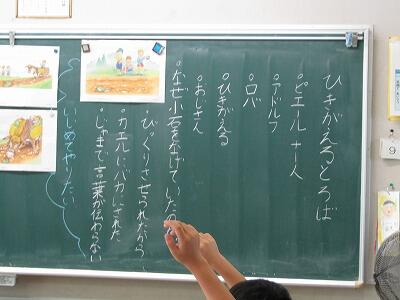 ひきがえるとろば
・ピエール 十一人
・アドルフ
・ロバ
・ひきがえる
・おじさん
・なぜ小石をなげていたのか
びっくりさせられたから
・カエルにバカにされた
・じゃまで言葉が伝わらない
いじめてやりたい
9